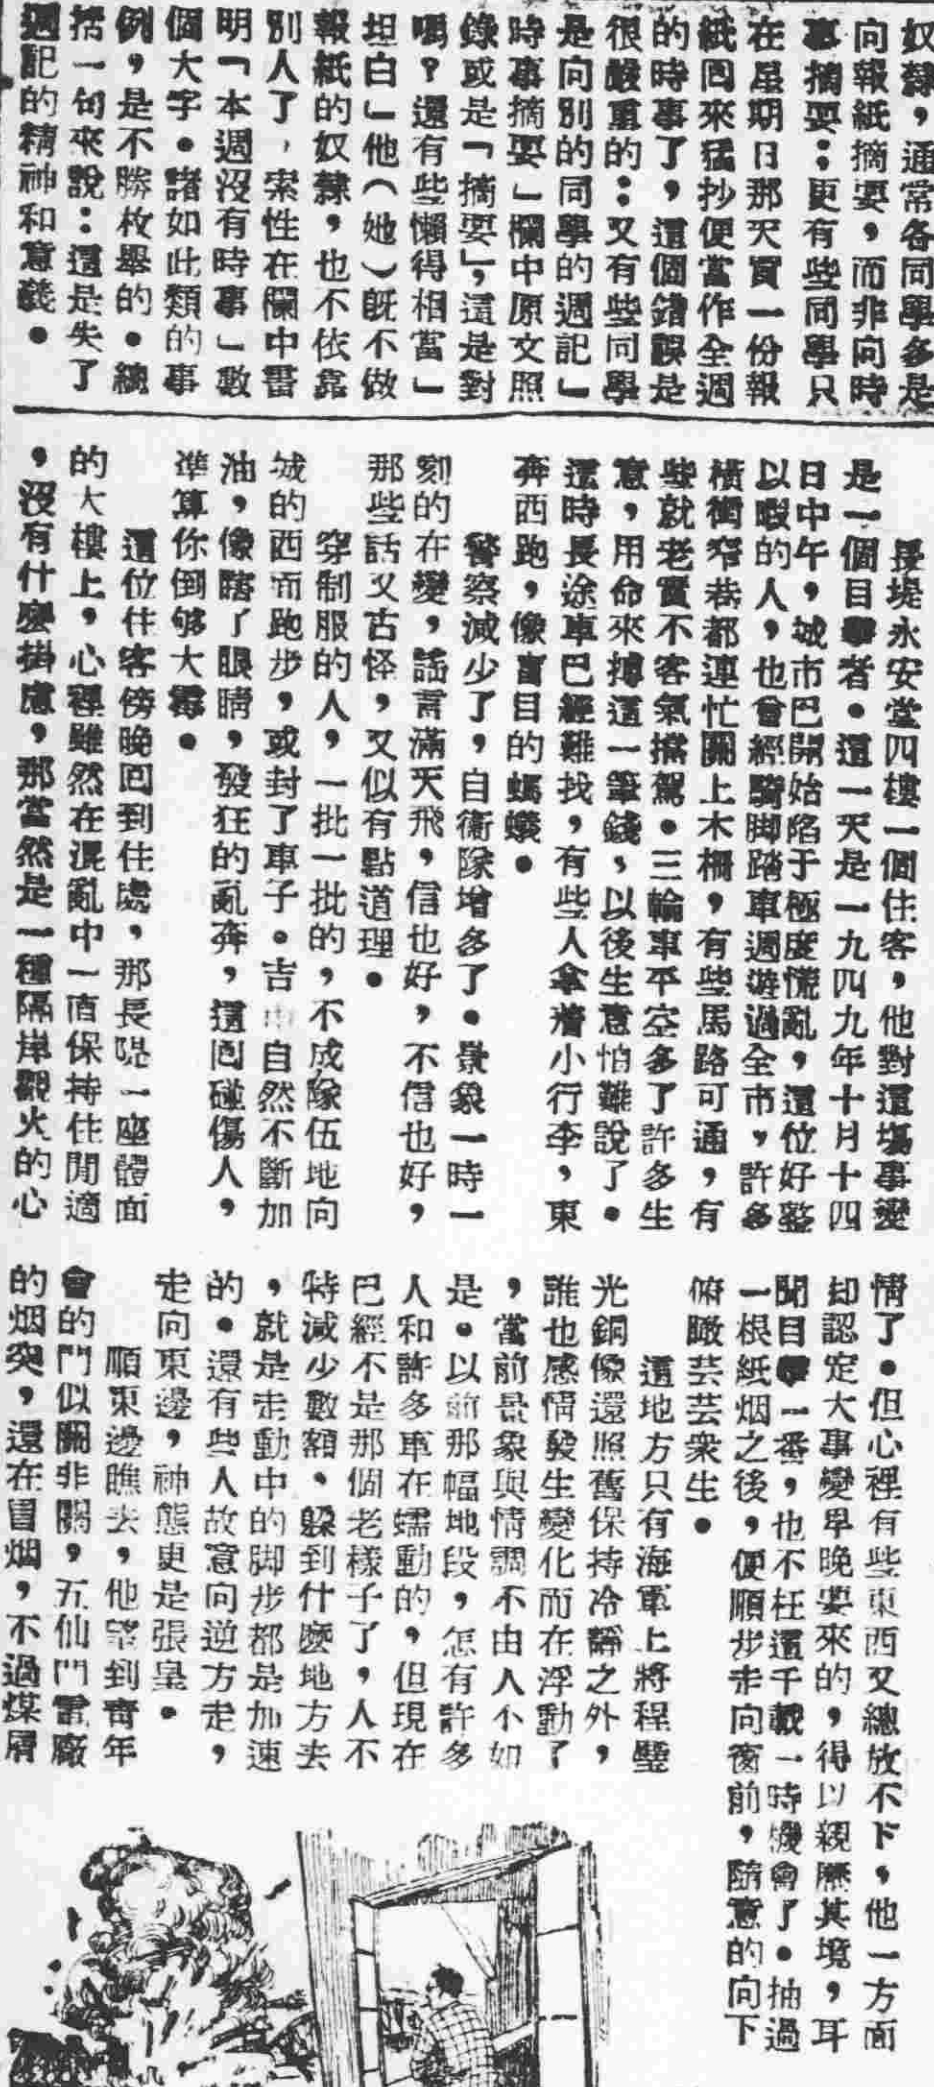 奴隸，通常各同學多是
向報紙摘要，而非向時
事摘要；更有些同學只
在星期日那天買一份報
紙回來猛抄便當作全週
的時事了，這個錯誤是
很嚴重的；又有些同學
是向別的同學的週記「
時事摘要」欄中原文照
錄或是「摘要」，這是對
嗎？還有些懶得相當「
坦白」他（她）既不做
報紙的奴隸，也不依靠
別人了，索性在欄中書
明「本週沒有時事」數
個大字。諸如此類的事
例，是不勝枚舉的。總
括一句來說：這是失了
週記的精神和意義。
長堤永安堂四樓一個住客，他對這場事變
是一個目擊者。這一天是一九四九年十月十四
日中午，城市巴開始陷于極度慌亂，這位好整
以暇的人，也曾經騎脚踏車週遊過全市，許多
橫衝窄巷都連忙關上木柵，有些馬路可通，有
些就老實不客氣擋駕。三輪車平空多了許多生
意，用命來搏這一筆錢，以後生意怕難說了。
這時長途車巴經難找，有些人拿着小行李，東
奔西跑，像盲目的螞蟻。
警察減少了，自衞隊增多了。景象一時一
刻的在變，謠言滿天飛，信也好，不信也好，
那些話又古怪，又似有點道理。
穿制服的人，一批一批的，不成隊伍地向
城的西而跑步，或封了車子。吉自然不斷加
油，像瞎了眼睛，發狂的亂奔，這囘碰傷人，
準算你倒够大霉。
這位住客傍晚囘到住處，那長堤一座體面
的大樓上，心裡雖然在混亂中一直保持住閒適
，沒有什麼掛慮，那當然是一種隔岸觀火的心
情了。但心裡有些東西又總放不下，他一方面
却認定大事變早晚要來的，得以親歷其境，耳
聞目擊一番，也不枉這千載一時機會了。抽過
一根紙烟之後，便順步走向窗前，隨意的向下
俯瞰芸芸衆生。
這地方只有海軍上將程璧
光銅像還照舊保持冷靜之外，
誰也感情發生變化而在浮動了
，當前景象與情調不由人不如
是。以前那幅地段，怎有許多
人和許多車在蠕動的，但現在
巴經不是那個老樣子了，人不
特減少數額、躱到什麼地方去
，就是走動中的脚步都是加速
的。還有些人故意向逆方走，
走向東邊，神態更是張皇。
順東邊瞧去，他望到靑年
會的門似關非關，五仙門電廠
的烟突，還在冒烟，不過煤屑